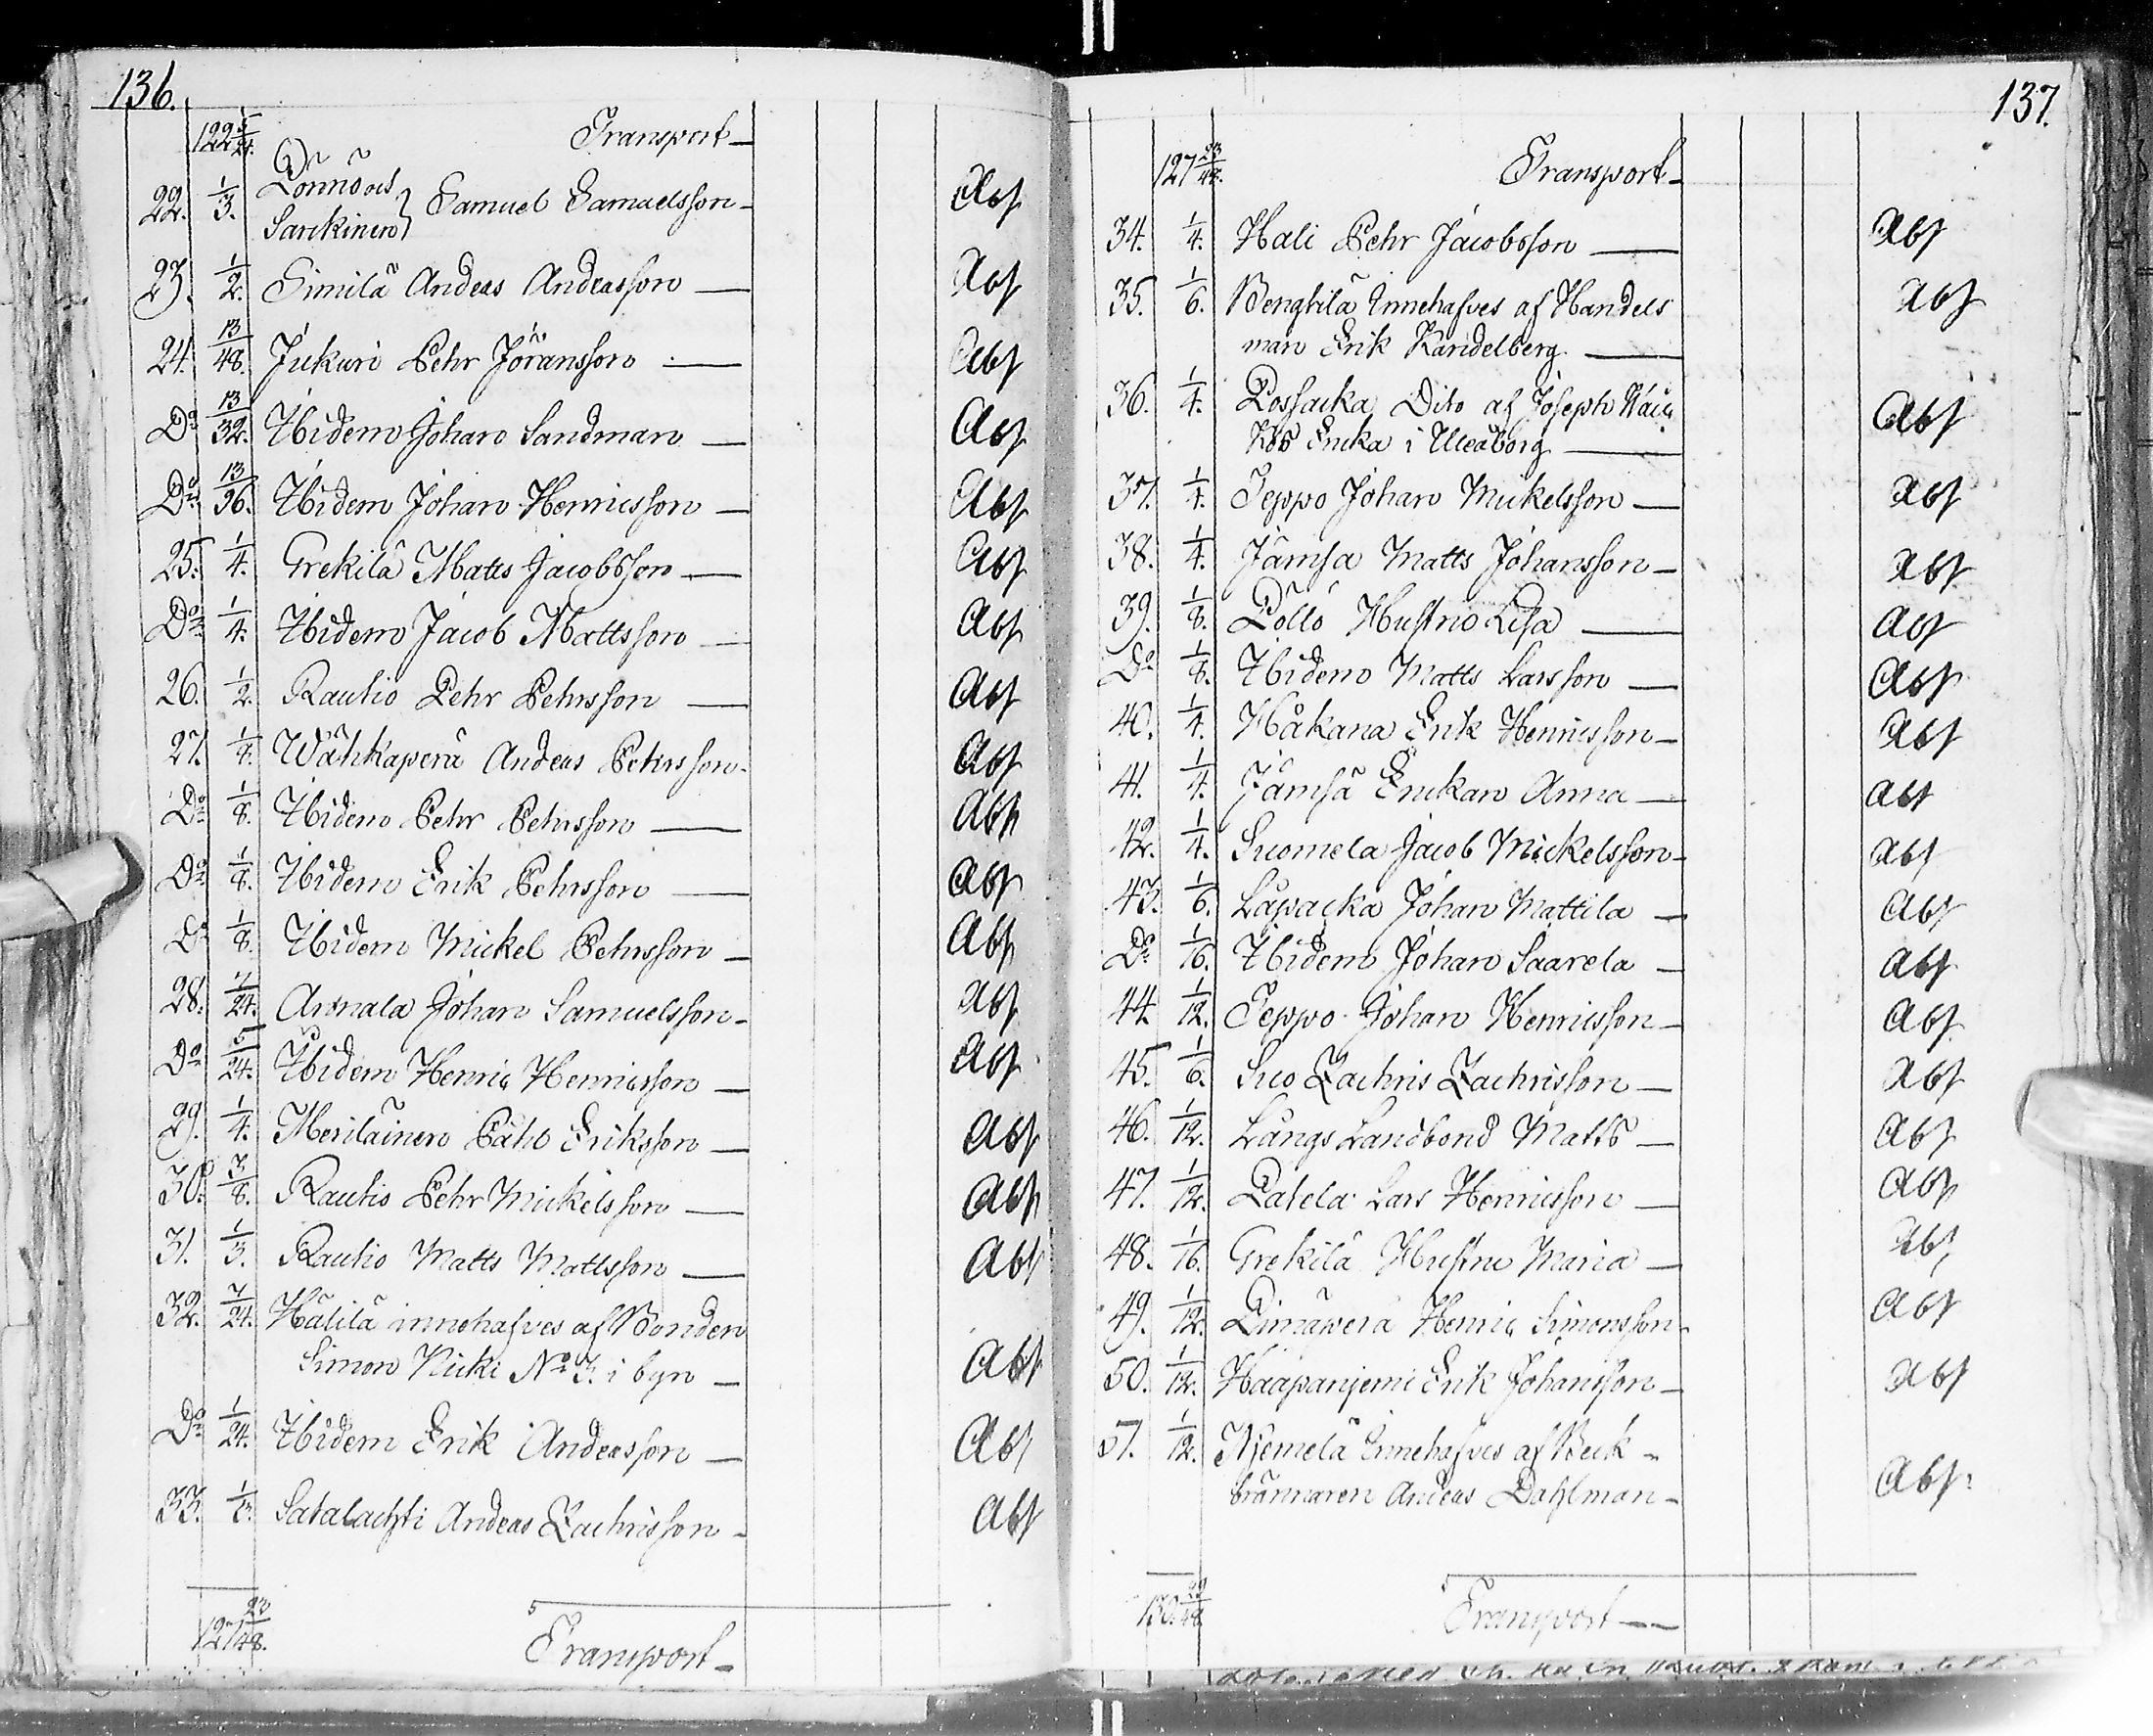 136.
122 5/24. Transport
22. 1/3. Pönnö och Sarckinen } Samuel Samuelsson Abs
23. 1/2. Similä Andeas Andeasson Abs
24. 13/48. Jukuri Pehr Jöransson Abs
Do 13/32. Ibidem Johan Sandman Abs
Do 13/96. Ibidem Johan Henricsson Abs
25. 1/4. Grekilä Matts Jacobsson Abs
Do 1/4. Ibidem Jacob Mattsson Abs
26. 1/2. Rautio Pehr Pehrsson Abs
27. 1/8. Wähkäperä Andeas Pehrsson Abs
Do 1/8. Ibidem Pehr Pehrsson Abs
Do 1/8. Ibidem Erik Pehrsson Abs
Do 1/8. Ibidem Mickel Pehrsson Abs
28. 7/24. Annala Johan Samuelsson Abs
Do 5/24. Ibidem Henric Henricsson Abs
29. 1/4. Meriläinen Påhl Eriksson Abs
30. 3/8. Rautio Pehr Mickelsson Abs
31. 1/3. Rautio Matts Mattsson Abs
32. 7/24. Hälilä innehafves af Bonden
Simon Nicki No 3. i byn Abs
Do 1/24. Ibidem Erik Andeasson Abs
33. 1/3. Satalachti Andeas Zachrisson Abs
127 23/48. Transport
137.
127 23/48. Transport
34. 1/4. Hali Pehr Jacobsson Abs
35. 1/6. Bengtilä Innehafves af Handels Abs
man Erik Kandelberg
36. 1/4. Possacka Dito af Joseph Abs
Encka i Uleåborg
37. 1/4. Seppo Johan Mickelsson Abs
38. 1/4. Jämsä Matts Johansson Abs
39. 1/8. Pöllö Hustru Lisa Abs
Do 1/8. Ibidem Matts Larsson Abs
40. 1/4. Håkana Erik Henricsson Abs
41. 1/4. Jämsä Enckan Anna Abs
42. 1/4. Suomela Jacob Mickelsson Abs
43. 1/6. Låpacka Johan Mattila Abs
Do 1/16. Ibidem Johan Saarela Abs
44. 1/12. Seppo Johan Henricsson Abs
45. 1/6. Suo Zachris Zachrisson Abs
46. 1/12. Långs Landbond Matts Abs
47. 1/12. Patela Lars Henricsson Abs
48. 1/16. Grekilä Hustru Maria Abs
49. 1/12. Henric Simonsson Abs
50. 1/12. Haapanjemi Erik Johansson Abs
51. 1/12. Njemelä Innehafves af Beck-
brännaren Andeas Dahlman Abs
130 29/48. Transport